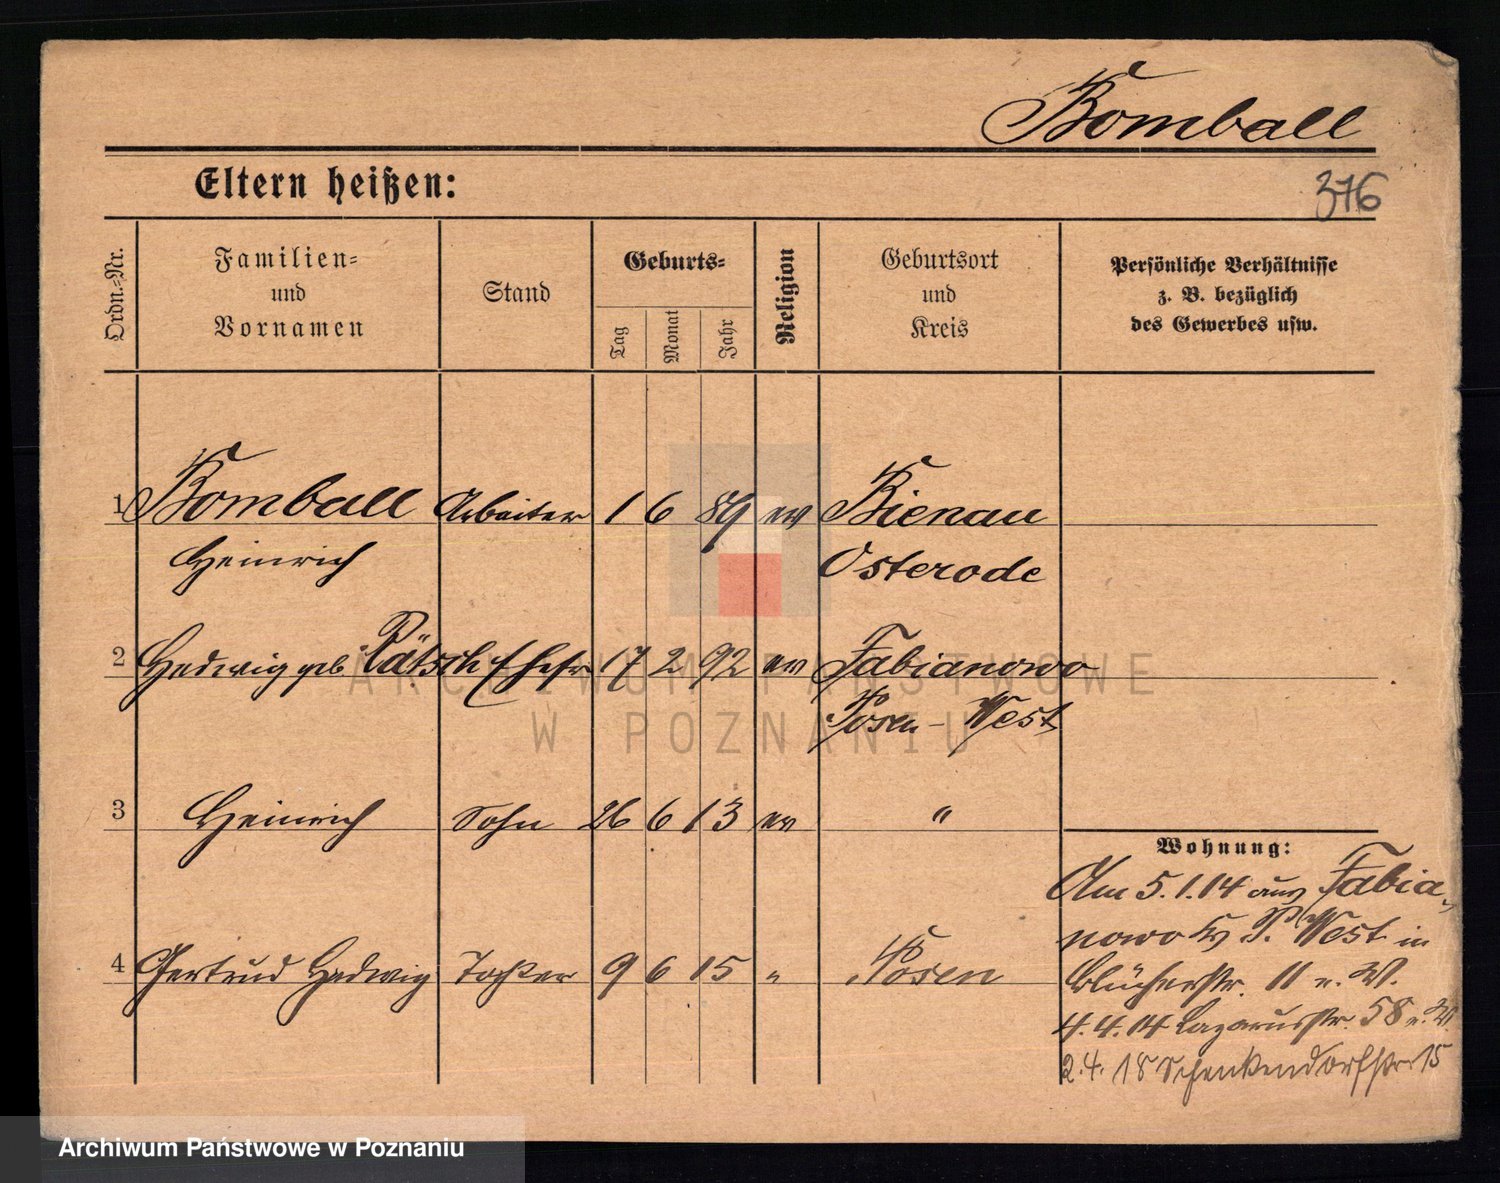 Komball
Eltern heißen:
376
Ordn.=Nr.
Familien=
und
Vornamen
Stand
Geburts=
Tag
Monat
Jahr
Religion
Geburtsort
und
Kreis
Persönliche Verhältnisse
z. B. bezüglich
des Gewerbes usw.
1 Komball Arbeiter 1 6 89 ev Bienau
Heinrich Osterode
2 Hedwig geb. Pätsch Ehefr 17 2 92 ev Fabianowo
Posen-West
3 Heinrich Sohn 26 6 13 ev "
4 Gertrud Hedwig Tochter 9 6 15 " Posen
Wohnung:
Am 5.1.14 aus Fabia-
nowo Kr P. West in
Blücherstr. 11 u. W.
4.4.14 Lazarusstr. 58 u. W.
2.4.18 Schenkendorfstr 15
ARCHIWUM PAŃSTWOWE
W POZNANIU
Archiwum Państwowe w Poznaniu